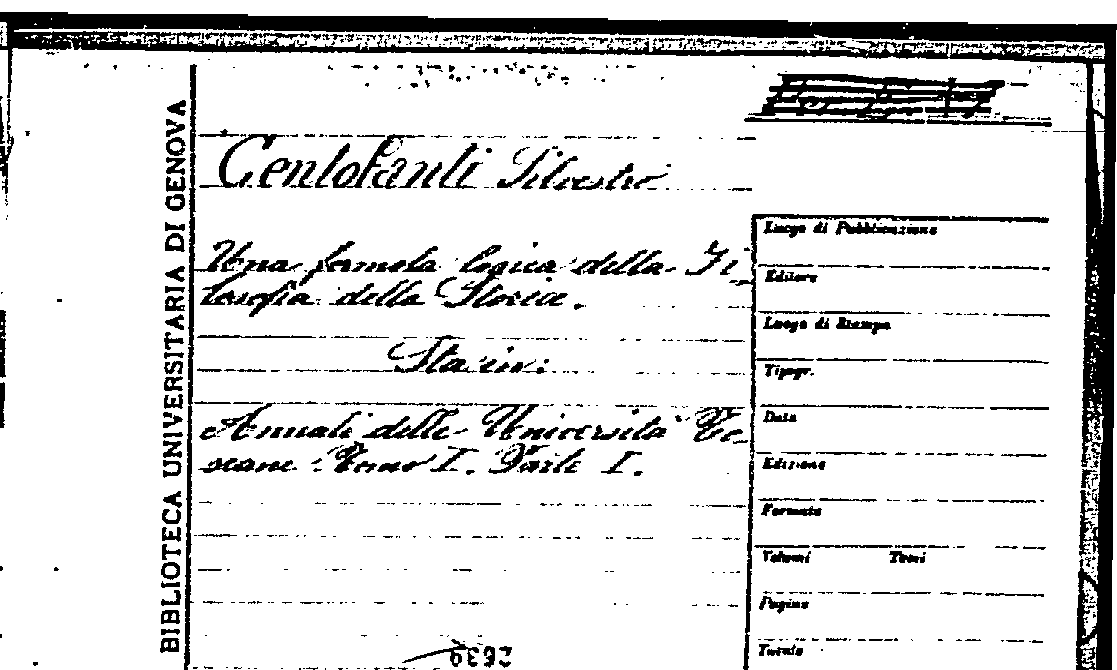 BIBLIOTECA UNIVERSITARIA DI GENOVA
Centofanti Silvestro
Una formola logica della Fi-
losofia della Storia.
Sta in:
Annali delle Università To-
scane. Tomo I. Parte I.
Luogo di Pubblicazione
Editore
Luogo di Stampa
Tipogr.
Data
Edizione
Formato
Volumi Tomi
Pagine
Tavole
2639